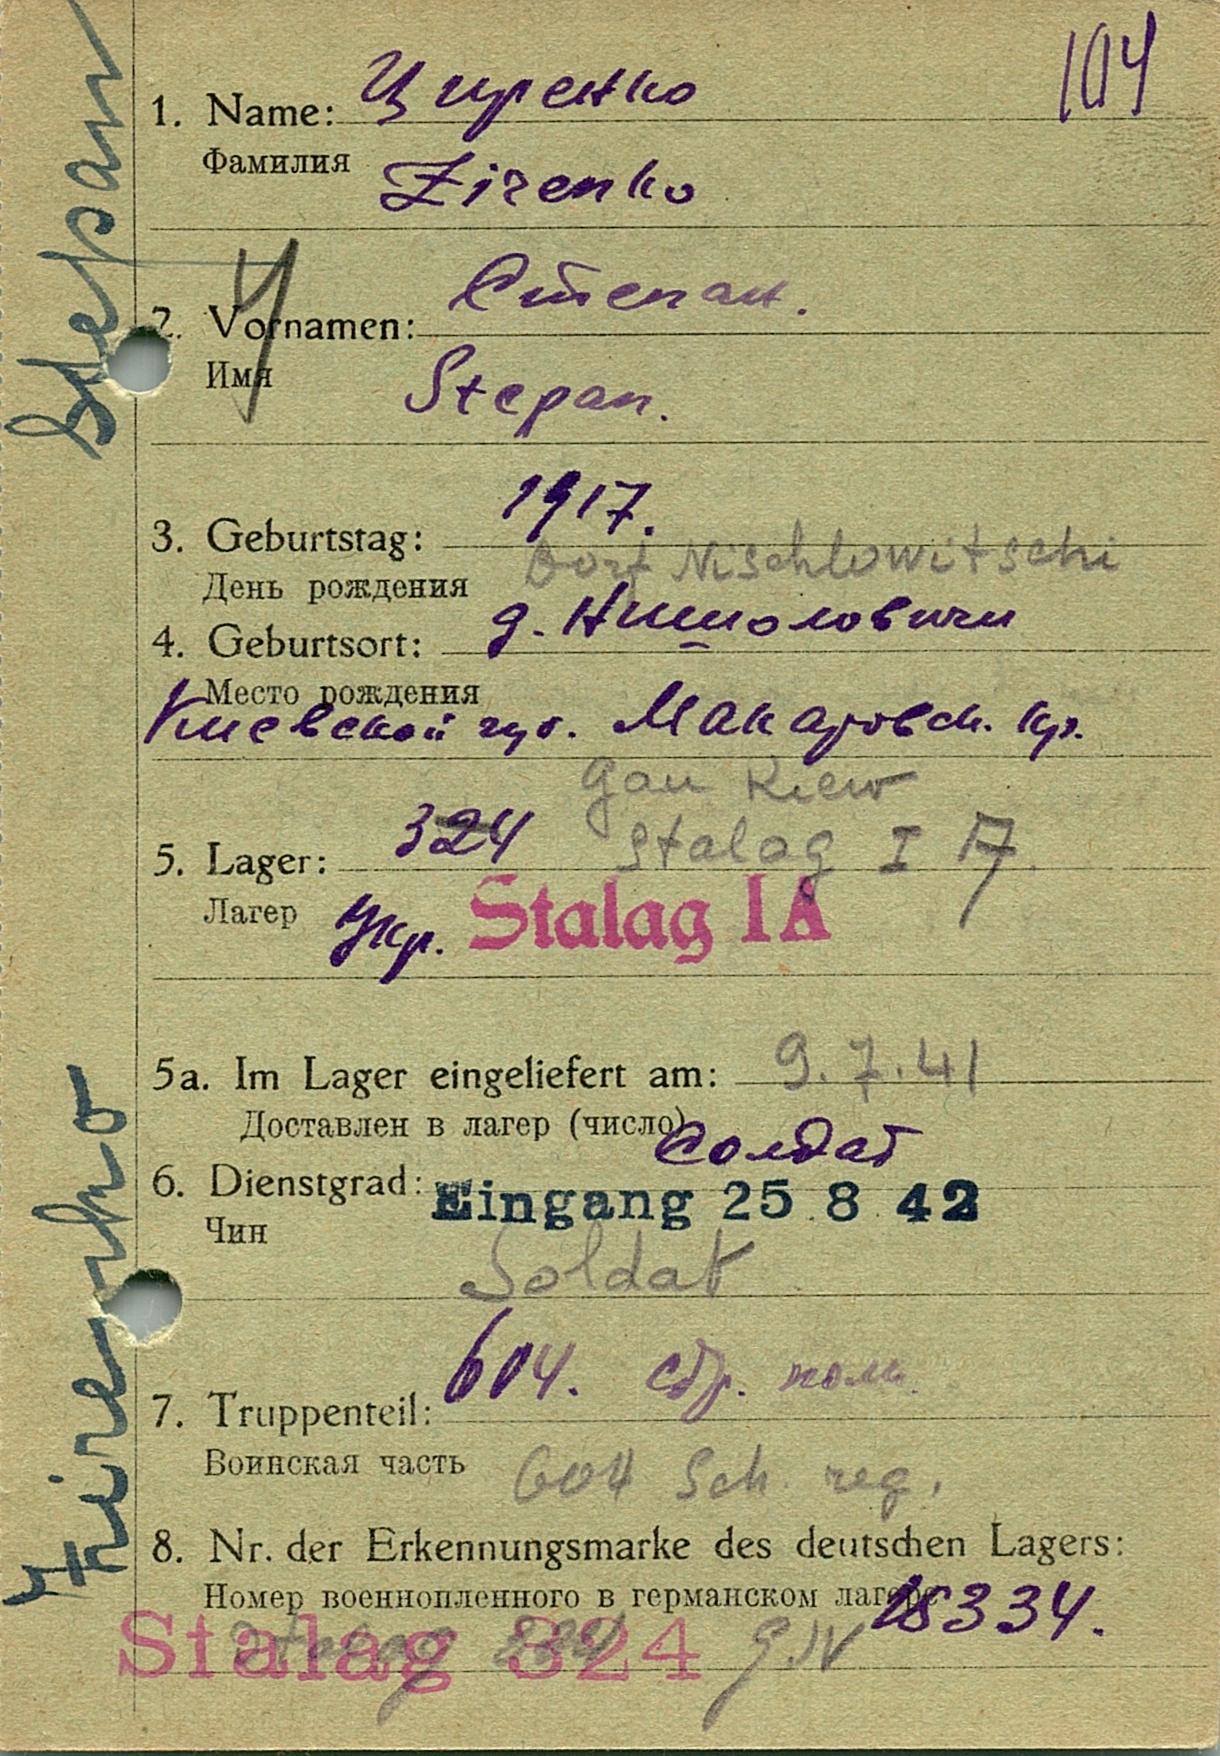 104
1. Name: Циренко
Фамилия Zirenko
2. Vornamen: Степан.
Имя Stepan.
1917.
3. Geburtstag:
Dorf Nischlowitschi
День рождения
4. Geburtsort: д. Нишоловичи
Место рождения
Киевской губ. Макаровск. кр.
Gau Kiew
5. Lager: 324 Stalag I A
Лагер Укр. Stalag IA
5a. Im Lager eingeliefert am: 9.7.41
Доставлен в лагер (число)
Солдат
6. Dienstgrad: Eingang 25.8.42
Чин
Soldat
7. Truppenteil: 604. стр. полк.
Воинская часть 604 Sch. reg.
8. Nr. der Erkennungsmarke des deutschen Lagers:
Номер военнопленного в германском лагере 18334.
Stalag 324
Stepan
Zirenko